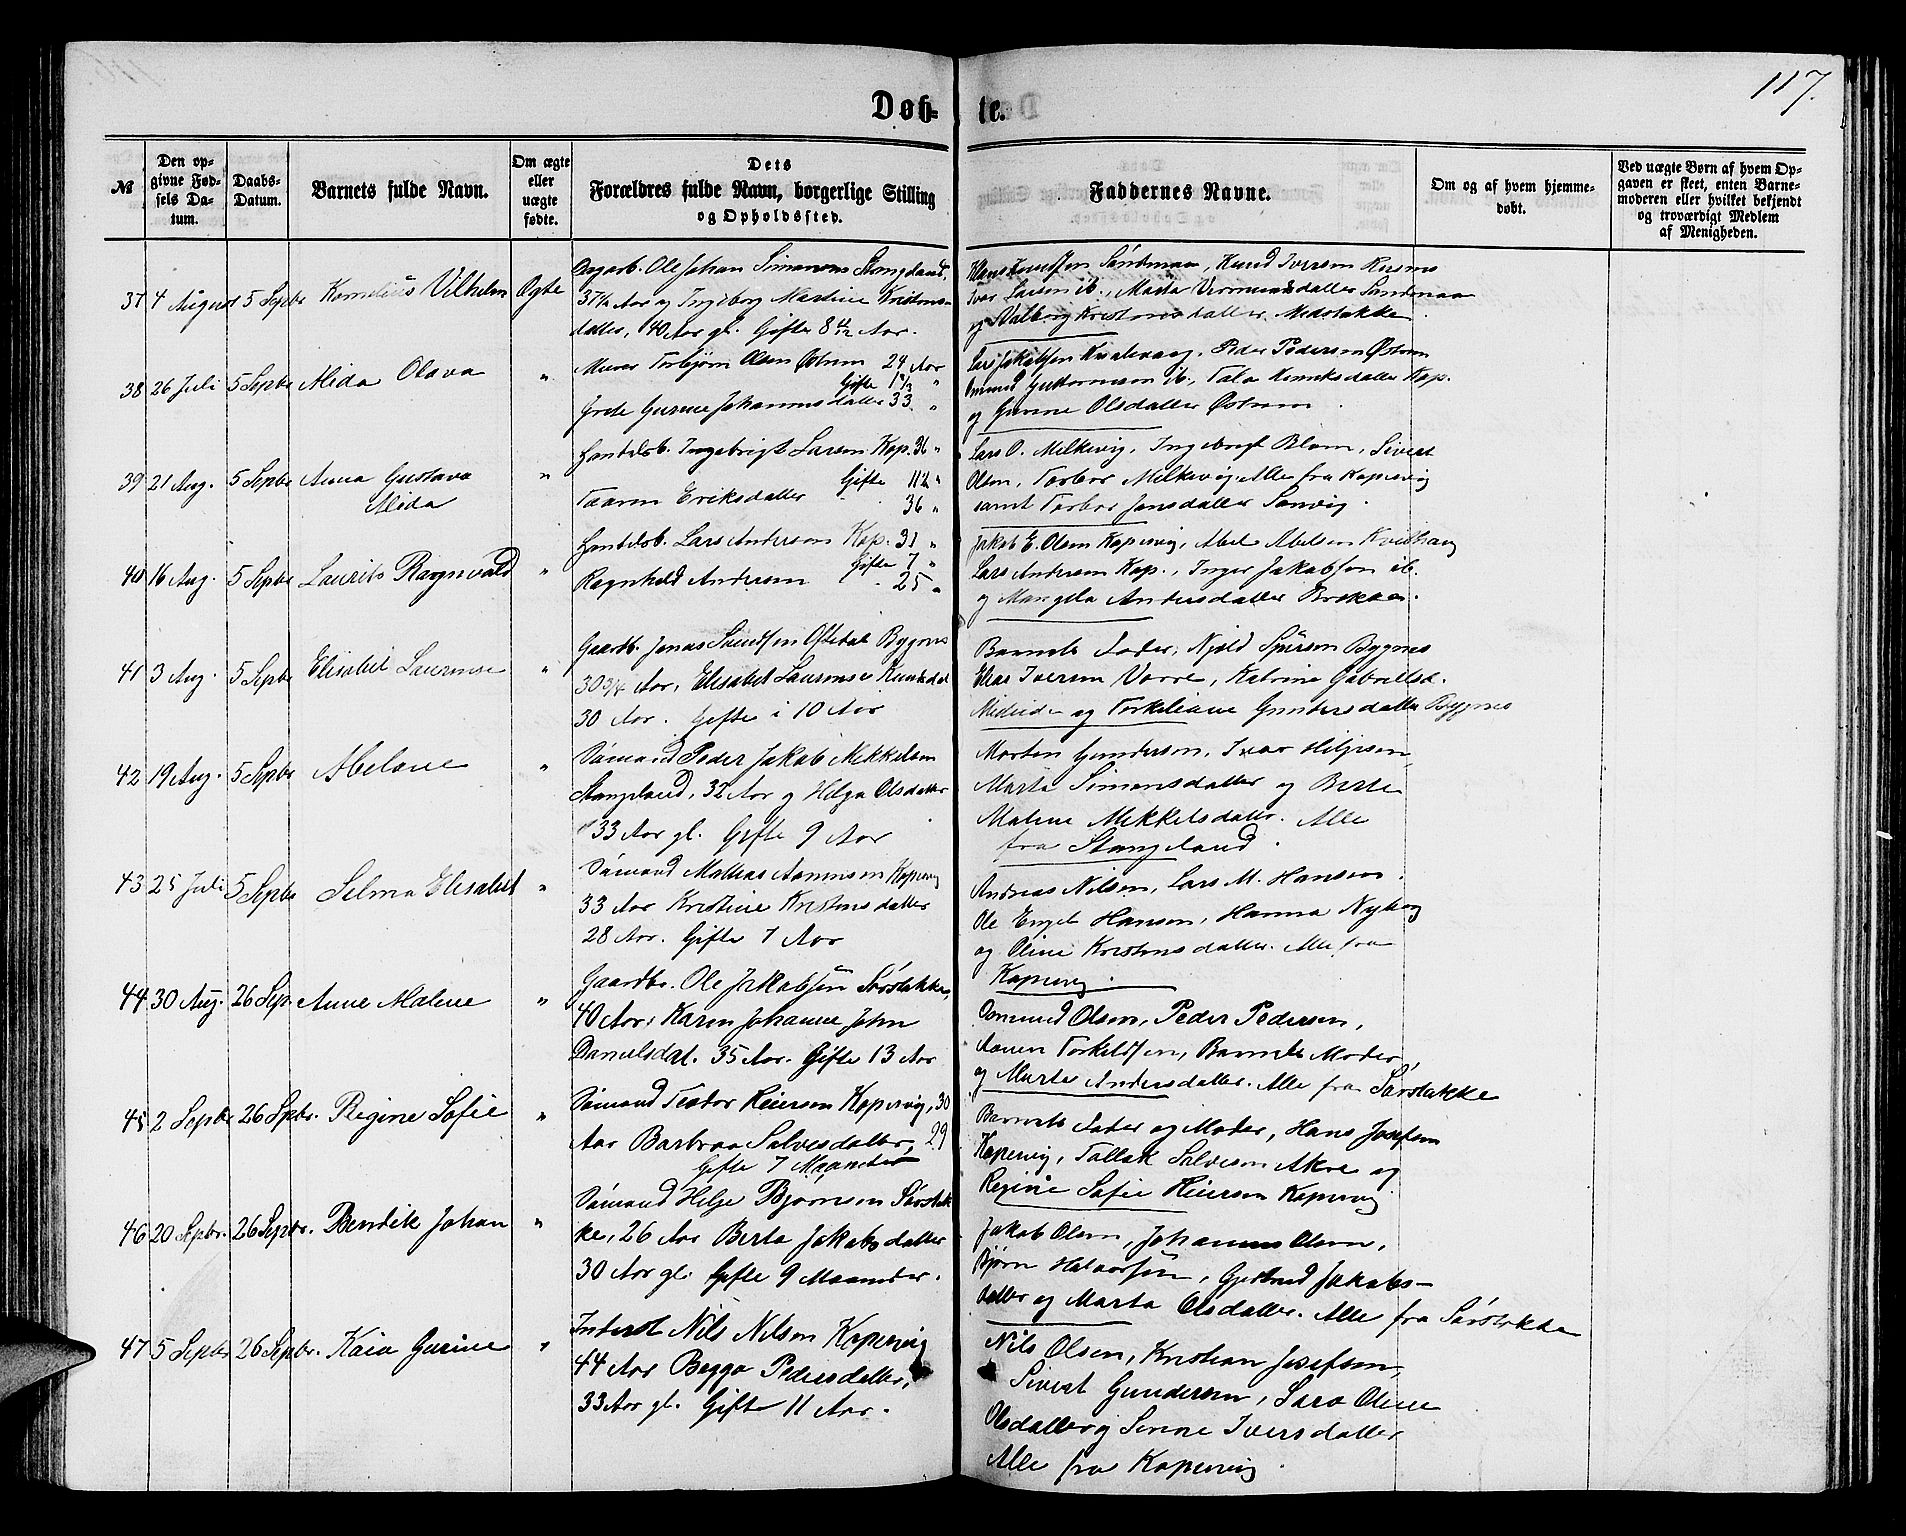 117.
Døb-
te.
№
Den op-
givne Fød-
sels Da-
tum.
Daabs-
Datum.
Barnets fulde Navn.
Om ægte
eller
uægte
fødte.
Dets
Forældres fulde Navn, borgerlige Stilling
og Opholdssted.
Faddernes Navne.
Om og af hvem hjemme-
døbt.
Ved uægte Børn af hvem Op-
gaven er skeet, enten Barne-
moderen eller hvilket bekjendt
og troværdigt Medlem
af Menigheden.
37 4 August 5 Sepbr Kornelius Vilhelm Ægte
Ole Johan Simonsen Stangeland,
37½ Aar og Ingeborg Martine Kristens-
datter, 40 Aar gl. Gifte 8 Aar.
Hans Knudsen Sandmaa, Knud Iversen
Iver Larsen ib., Marta Sandmaa
og Valborg Kristensdatter Medstakke
38 26 Juli 5 Sepbr Alida Olava "
Murer Torbjørn Olsen Østrem 24 Aar
Gifte "
Grete Gurine Johannesdatter 33 "
Lars Jakobsen Kvalevaag, Peder Pedersen Østrem
Guttormsen ib., Tala Henriksdatter Kop.
og Gurine Olsdatter Østrem
39 21 Aug. 5 Sepbr Anna Gustava
Alida "
Handelsb. Ingebrigt Larsen Kop. 36 "
Gifte "
Taaren Eriksdatter 36 "
Lars O. Milkevig, Ingebrigt Blom, Sivert
Olsen, Torbor Milkevig. Alle fra Kopervig
samt Torbor Jansdatter Sanvig.
40 16 Aug. 5 Sepbr Laurits Ragnvald "
Handelsb. Lars Andersen Kop. 31 "
Gifte 7 "
Ragnhild Andersen 25 "
Jakob E. Olsen Kopervig, Abel Abelsen Kvilhaug
Lars Andersen Kop., Inger Jakobsen ib.
og Mangela Andersdatter
41 3 Aug. 5 Sepbr Elisabet Laurense "
Gaardb. Jonas Svendsen Oftedal Bygnes
30 3/4 Aar, Elisabet Laurense Knutsdat
30 Aar. Gifte i 10 Aar
Barnets Fader, Njeld Bygnes
Elias Iversen Vorre, Katrine Gabrielsd.
og Torkeliane Gundersdatter Bygnes
42 19 Aug. 5 Sepbr Abelone "
Sømand Peder Jakob Mikkelsen
Stangeland, 32 Aar og Helga Olsdatter
33 Aar gl. Gifte 9 Aar
Morten Gundersen, Ivar Hiljesen
Marta Simonsdatter og Berte
Malene Mikkelsdatter. Alle
fra Stangeland.
43 25 Juli 5 Sepbr Selma Elisabet "
Sømand Mathias Kopervig
33 Aar Kristine Kristensdatter
28 Aar. Gifte 7 Aar
Andreas Nilsen, Lars M. Hansen.
Ole Engel Hansen, Hanna Nyborg
og Oline Kristensdatter. Alle fra
Kopervig.
44 30 Aug. 26 Sep. Anne Malene "
Gaardbr. Ole Jakobsen Sørstakke,
40 Aar, Karen Johanne John
Danielsdat. 35 Aar. Gifte 13 Aar
Omund Olsen, Peder Pedersen,
Torkeldsen, Barnets Moder,
og Marta Andersdatter. Alle fra Sørstakke
45 2 Sepbr 26 Sepbr. Regine Sofie "
Sømand Teodor Reiersen Kopervig, 30
Aar Barbraa Salvesdatter, 29
Gifte 7 Maaneder
Barnets Fader og Moder, Hans Josefsen
Kopervig, Tallak Salvesen Akre og
Regine Sofie Reiersen Kopervig
46 20 Sepbr. 26 Sepbr. Bendik Johan "
Sømand Helje Bjørnsen Sørstak-
ke, 26 Aar Berta Jakobsdatter
30 Aar gl. Gifte 9 Maaneder.
Jakob Olsen, Johannes Olsen,
Bjørn Halvorsen, Gjertrud Jakobs-
datter og Marta Olsdatter. Alle fra Sørstakke
47 5 Sepbr 26 Sepbr. Kaia Gurine "
Inderst Nils Nilsen Kopervig
44 Aar Begga Pedersdatter,
33 Aar gl. Gifte 11 Aar.
Nils Olsen, Kristian Josefsen,
Sivert Gundersen, Sara Oline
Olsdatter og Serine Iversdatter
Alle fra Kopervig.